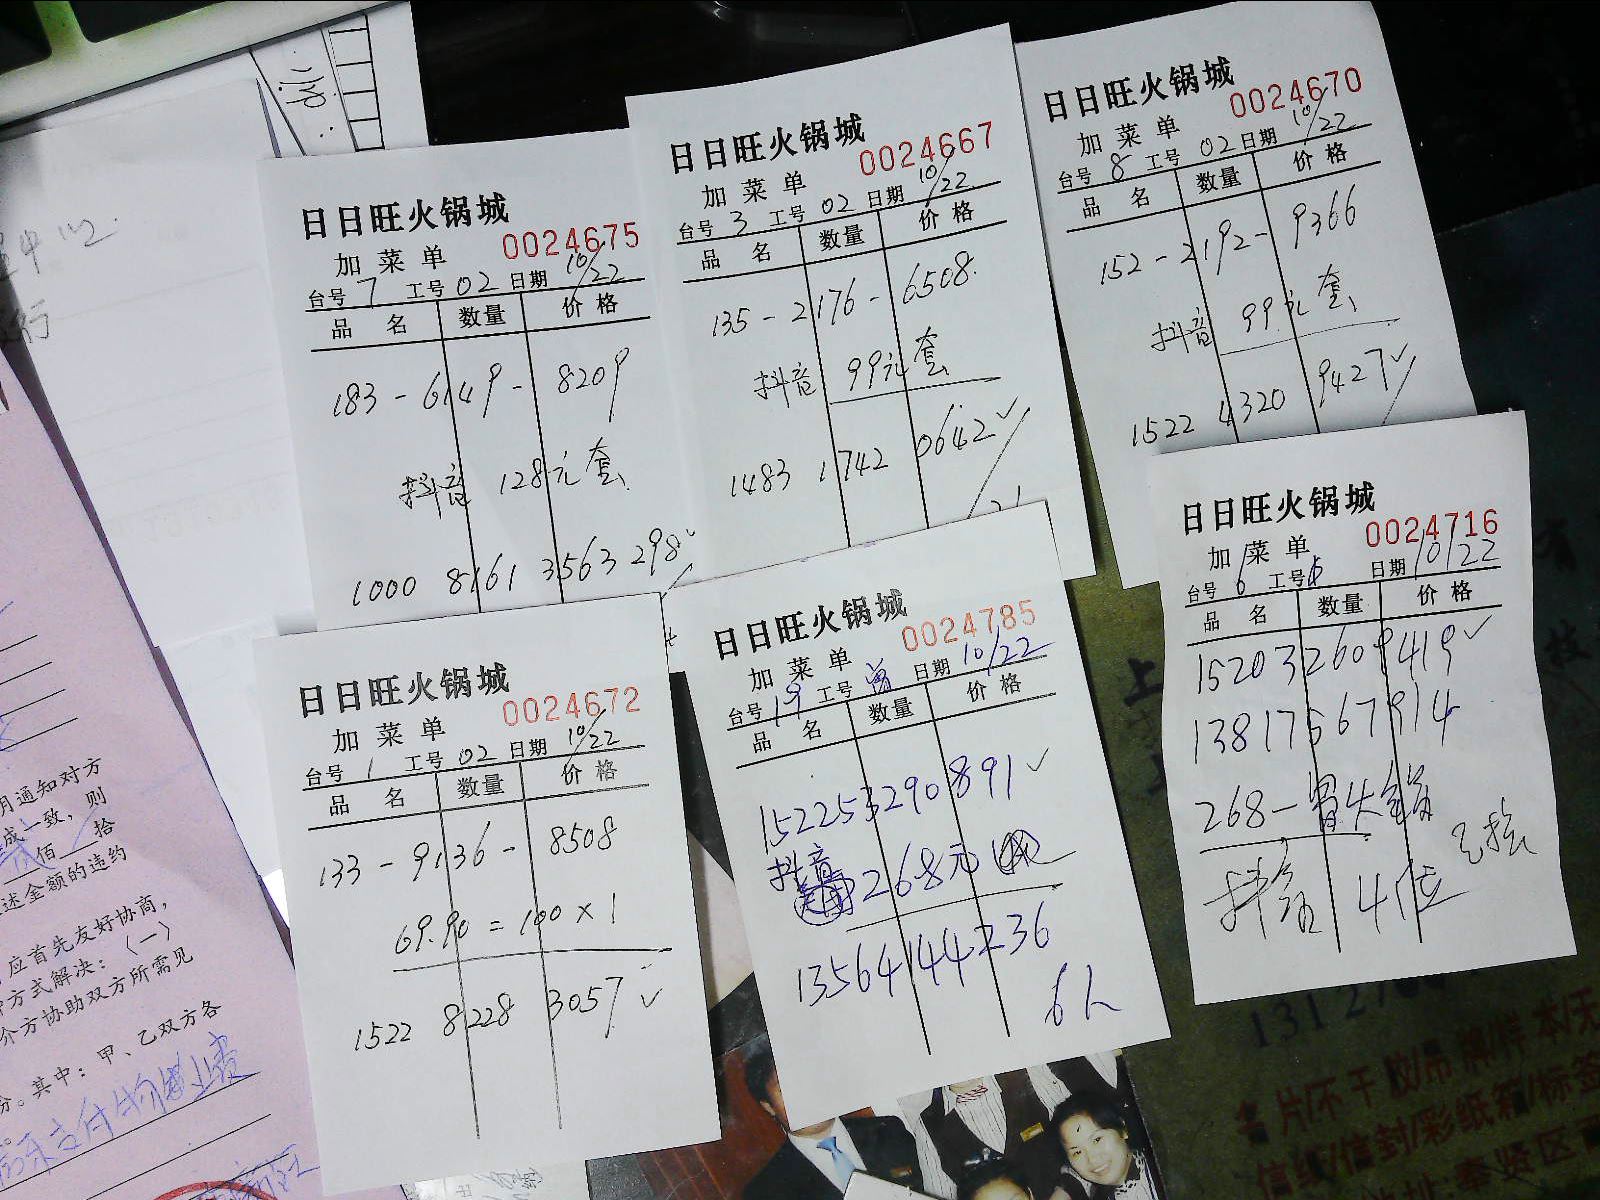 日日旺火锅城
0024675
加菜单
台号 7 工号 02 日期 10/22
品名 数量 价格
183-6149-8209
抖音 128元套
1000 8161 3563 298✓
日日旺火锅城
0024667
加菜单
台号 3 工号 02 日期 10/22
品名 数量 价格
135-2176-6508
抖音 99元套
1483 1742 0642✓
日日旺火锅城
0024670
加菜单
台号 8 工号 02 日期 10/22
品名 数量 价格
152-2192-9366
抖音 99元套
1522 4320 9427✓
日日旺火锅城
0024672
加菜单
台号 1 工号 02 日期 10/22
品名 数量 价格
133-9136-8508
69.90=100×1
1522 8228 3057✓
日日旺火锅城
0024785
加菜单
台号 19 工号 日期 10/22
品名 数量 价格
152253290891✓
抖音 268元
13564144236
6人
日日旺火锅城
0024716
加菜单
台号 6 工号 日期 10/22
品名 数量 价格
152032609419✓
13817567914
268-
抖音 4位 已核
月通知对方
成一致，则
佰 拾
述金额的违约
应首先友好协商，
方式解决：（一）
介方协助双方所需见
份。其中：甲、乙双方各
片/不干胶/吊牌/样本/无
信纸/信封/彩纸箱/标签
奉贤区